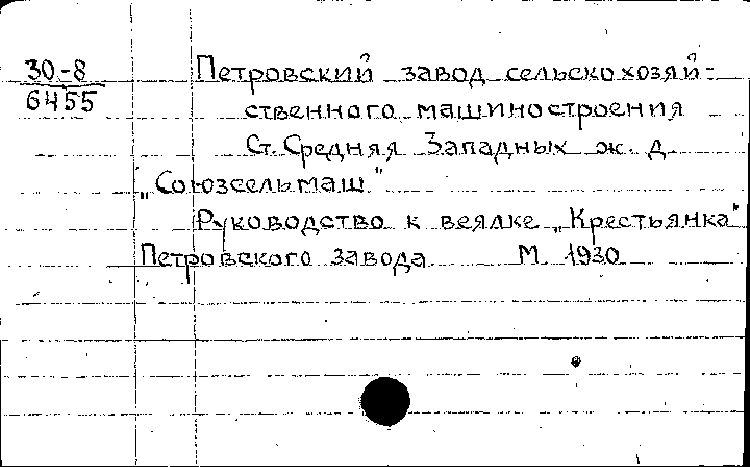 30-8
6455
Петровский завод сельскохозяй-
ственного машиностроения
Ст. Средняя Западных ж. д.
„Союзсельмаш"
Руководство к веялке „Крестьянка"
Петровского завода М. 1930